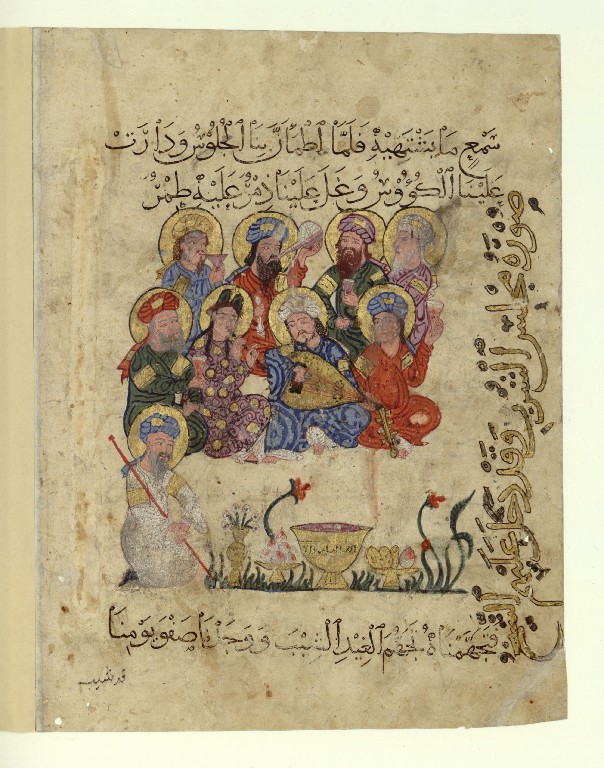 سَمْعٍ مَا يَشْتَهِيهِ فَلَمَّا اطْمَأَنَّ بِنَا الْجُلُوسُ وَدَارَتْ
عَلَيْنَا الْكُؤُوسُ وَغَلَ عَلَيْنَا ذِمْرٌ عَلَيْهِ طِمْرٌ
صورة مجلس الشرب وقد دخل عليهم الشيخ
فَتَجَهَّمْنَاهُ تَجَهُّمَ الْغِيدِ الشِّيبَ وَوَجَدْنَا صَفْوَ يَوْمِنَا
قد شيب